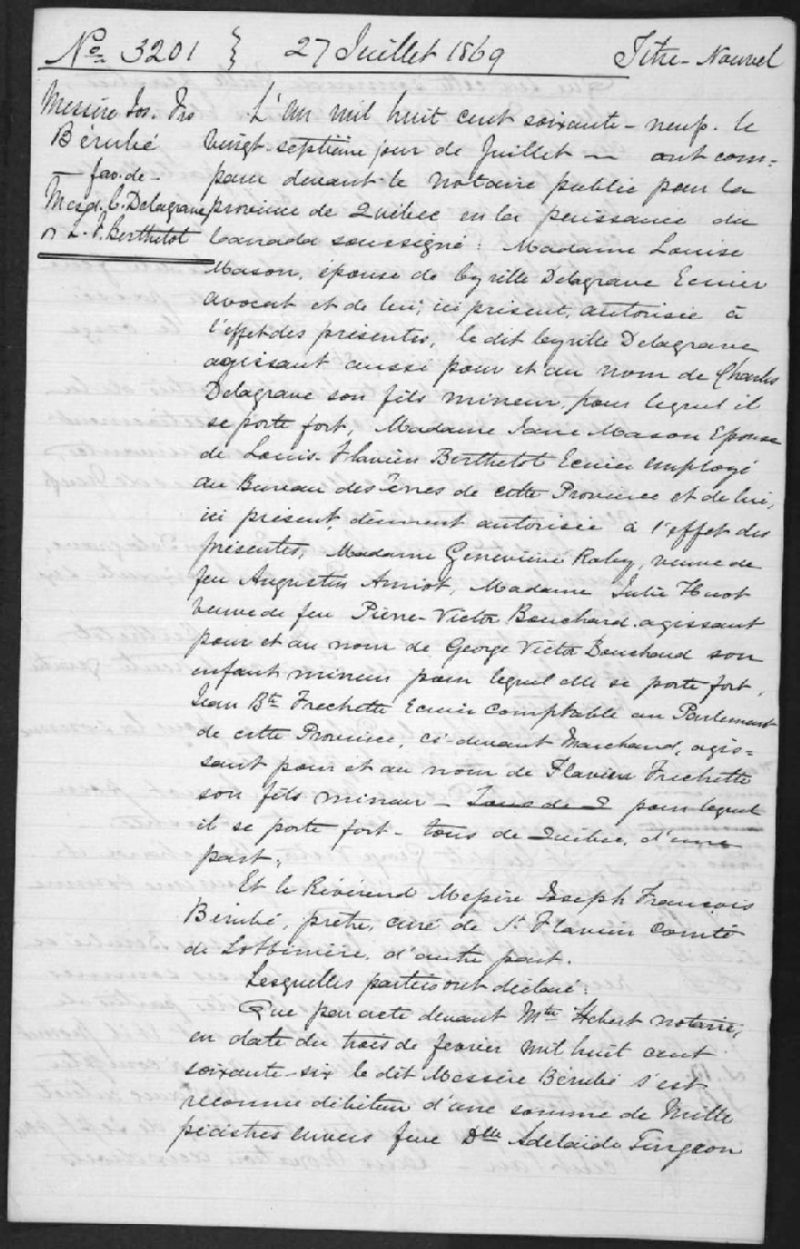 No 3201 } 27 Juillet 1869 Titre-Nouvel
Messire Jos. Frs
Bérubé
fav. de
Mesd. C. Delagrave
& L. F. Berthelot
L'An mil huit cent soixante-neuf. le
vingt-septième jour de Juillet — ont com=
paru devant le notaire public pour la
province de Québec en la puissance du
Canada soussigné: Madame Louise
Mason, épouse de Cyrille Delagrave Ecuier
avocat et de lui, ici présent, autorisée à
l'effet des présentes, le dit Cyrille Delagrave
agissant aussi pour et au nom de Charles
Delagrave son fils mineur, pour lequel il
se porte fort, Madame Jane Mason Epouse
de Louis Flavien Berthelot Ecuier Employé
au Bureau des Terres de cette Province et de lui,
ici présent, dûment autorisée à l'effet des
présentes, Madame Geneviève Raby, veuve de
feu Augustin Amiot, Madame Julie Huot
veuve de feu Pierre-Victor Bouchard. agissant
pour et au nom de George Victor Bouchard son
enfant mineur pour lequel elle se porte fort,
Jean Bte Frechette Ecuier Comptable au Parlement
de cette Province, ci-devant Marchand, agis=
sant pour et au nom de Flavien Frechette
son fils mineur — pour lequel
il se porte fort - tous de Québec, d'une
part,
Et le Révérend Messire Joseph François
Bérubé, prêtre, curé de St Flavien Comté
de Lotbinière, d'autre part.
Lesquelles parties ont déclaré:
Que par acte devant Mtre Hebert notaire,
en date du trois de fevrier mil huit cent
soixante-six le dit Messire Bérubé s'est
reconnu débiteur d'une somme de Mille
piastres envers feue Dlle Adelaïde Turgeon